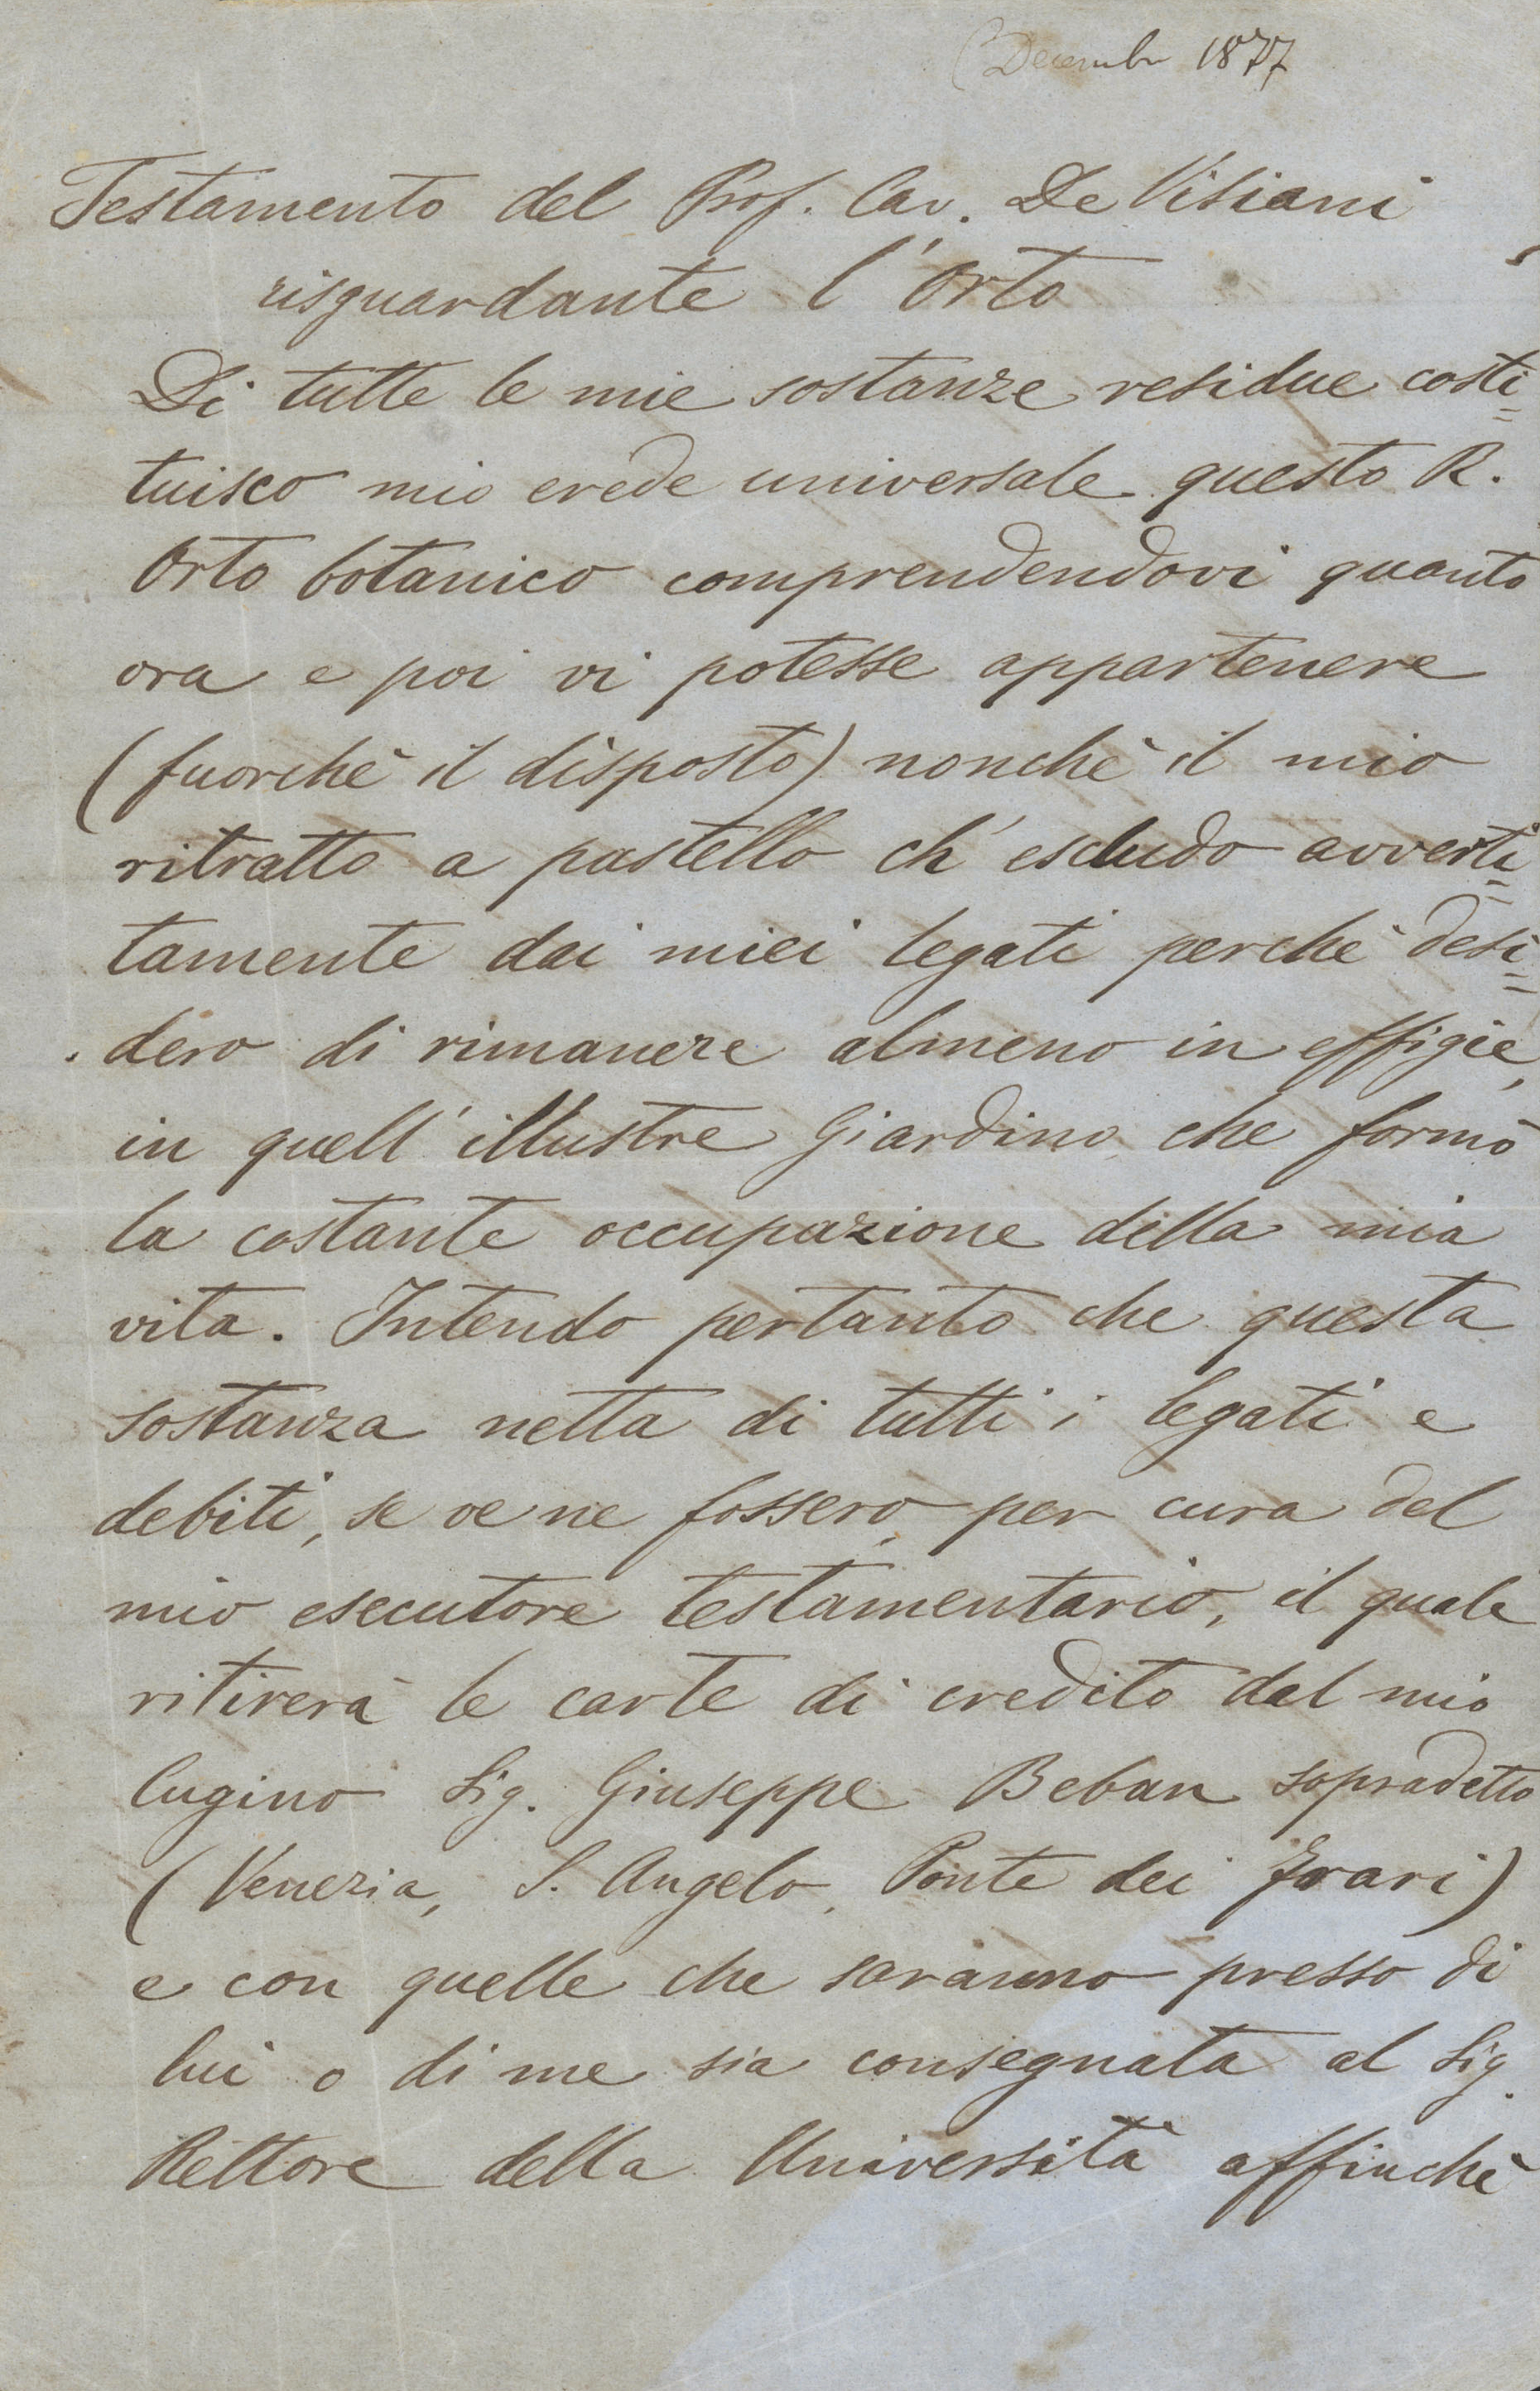 (Decembr 1877
Testamento del Prof. Cav. De Visiani
risguardante l'Orto
Di tutte le mie sostanze residue costi=
tuisco mio erede universale questo R.
Orto botanico comprendendovi quanto
ora e poi vi potesse appartenere
(fuorchè il disposto) nonchè il mio
ritratto a pastello ch'escludo avverti=
tamente dai miei legati perchè desi=
dero di rimanere almeno in effigie,
in quell'illustre Giardino che formò
la costante occupazione della mia
vita. Intendo pertanto che questa
sostanza netta di tutti i legati e
debiti, se ve ne fossero, per cura del
mio esecutore testamentario, il quale
ritirerà le carte di credito dal mio
Cugino Sig. Giuseppe Beban sopradetto
(Venezia, S. Angelo, Ponte dei Frari)
e con quelle che saranno presso di
lui o di me sia consegnata al Sig.
Rettore della Università affinchè